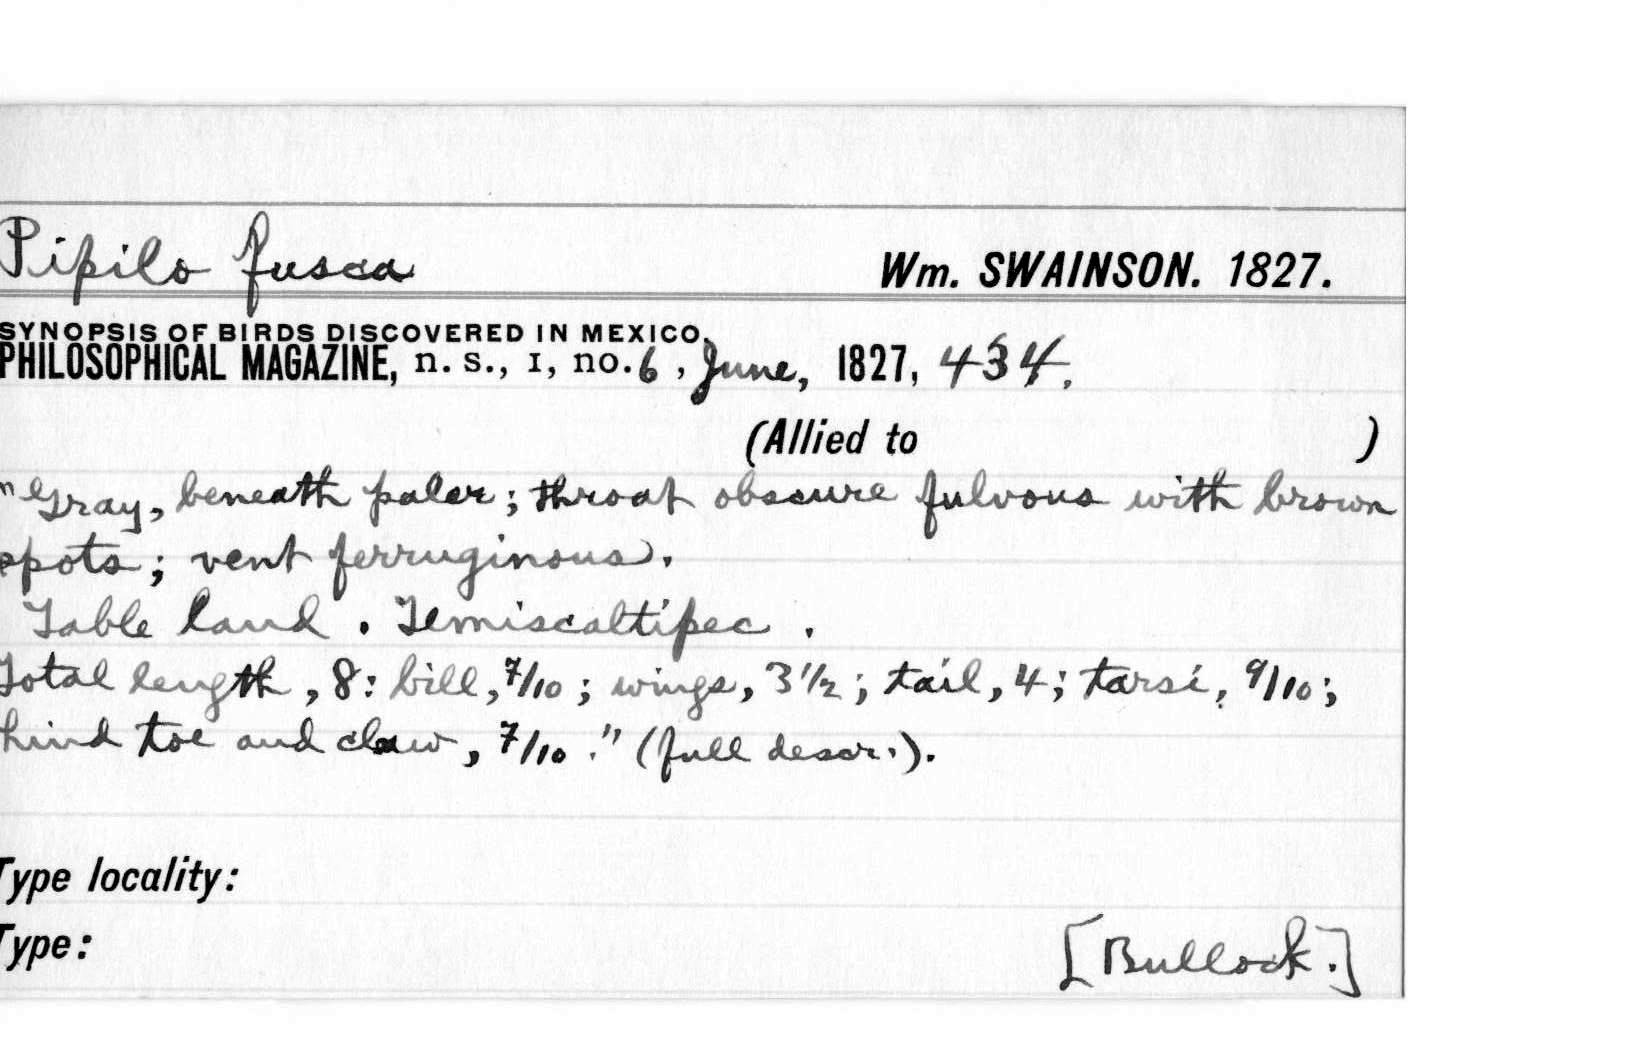 Pipilo fusca Wm. SWAINSON. 1827.
SYNOPSIS OF BIRDS DISCOVERED IN MEXICO,
PHILOSOPHICAL MAGAZINE, n. s., I, no. 6, June, 1827, 434.
(Allied to )
"Gray, beneath paler; throat obscure fulvous with brown
spots; vent ferruginous.
Table land. Temiscaltipec.
Total length, 8: bill, 7/10; wings, 3 1/2; tail, 4; tarsi, 9/10;
hind toe and claw, 7/10." (full descr.).
Type locality:
Type: [Bullock.]